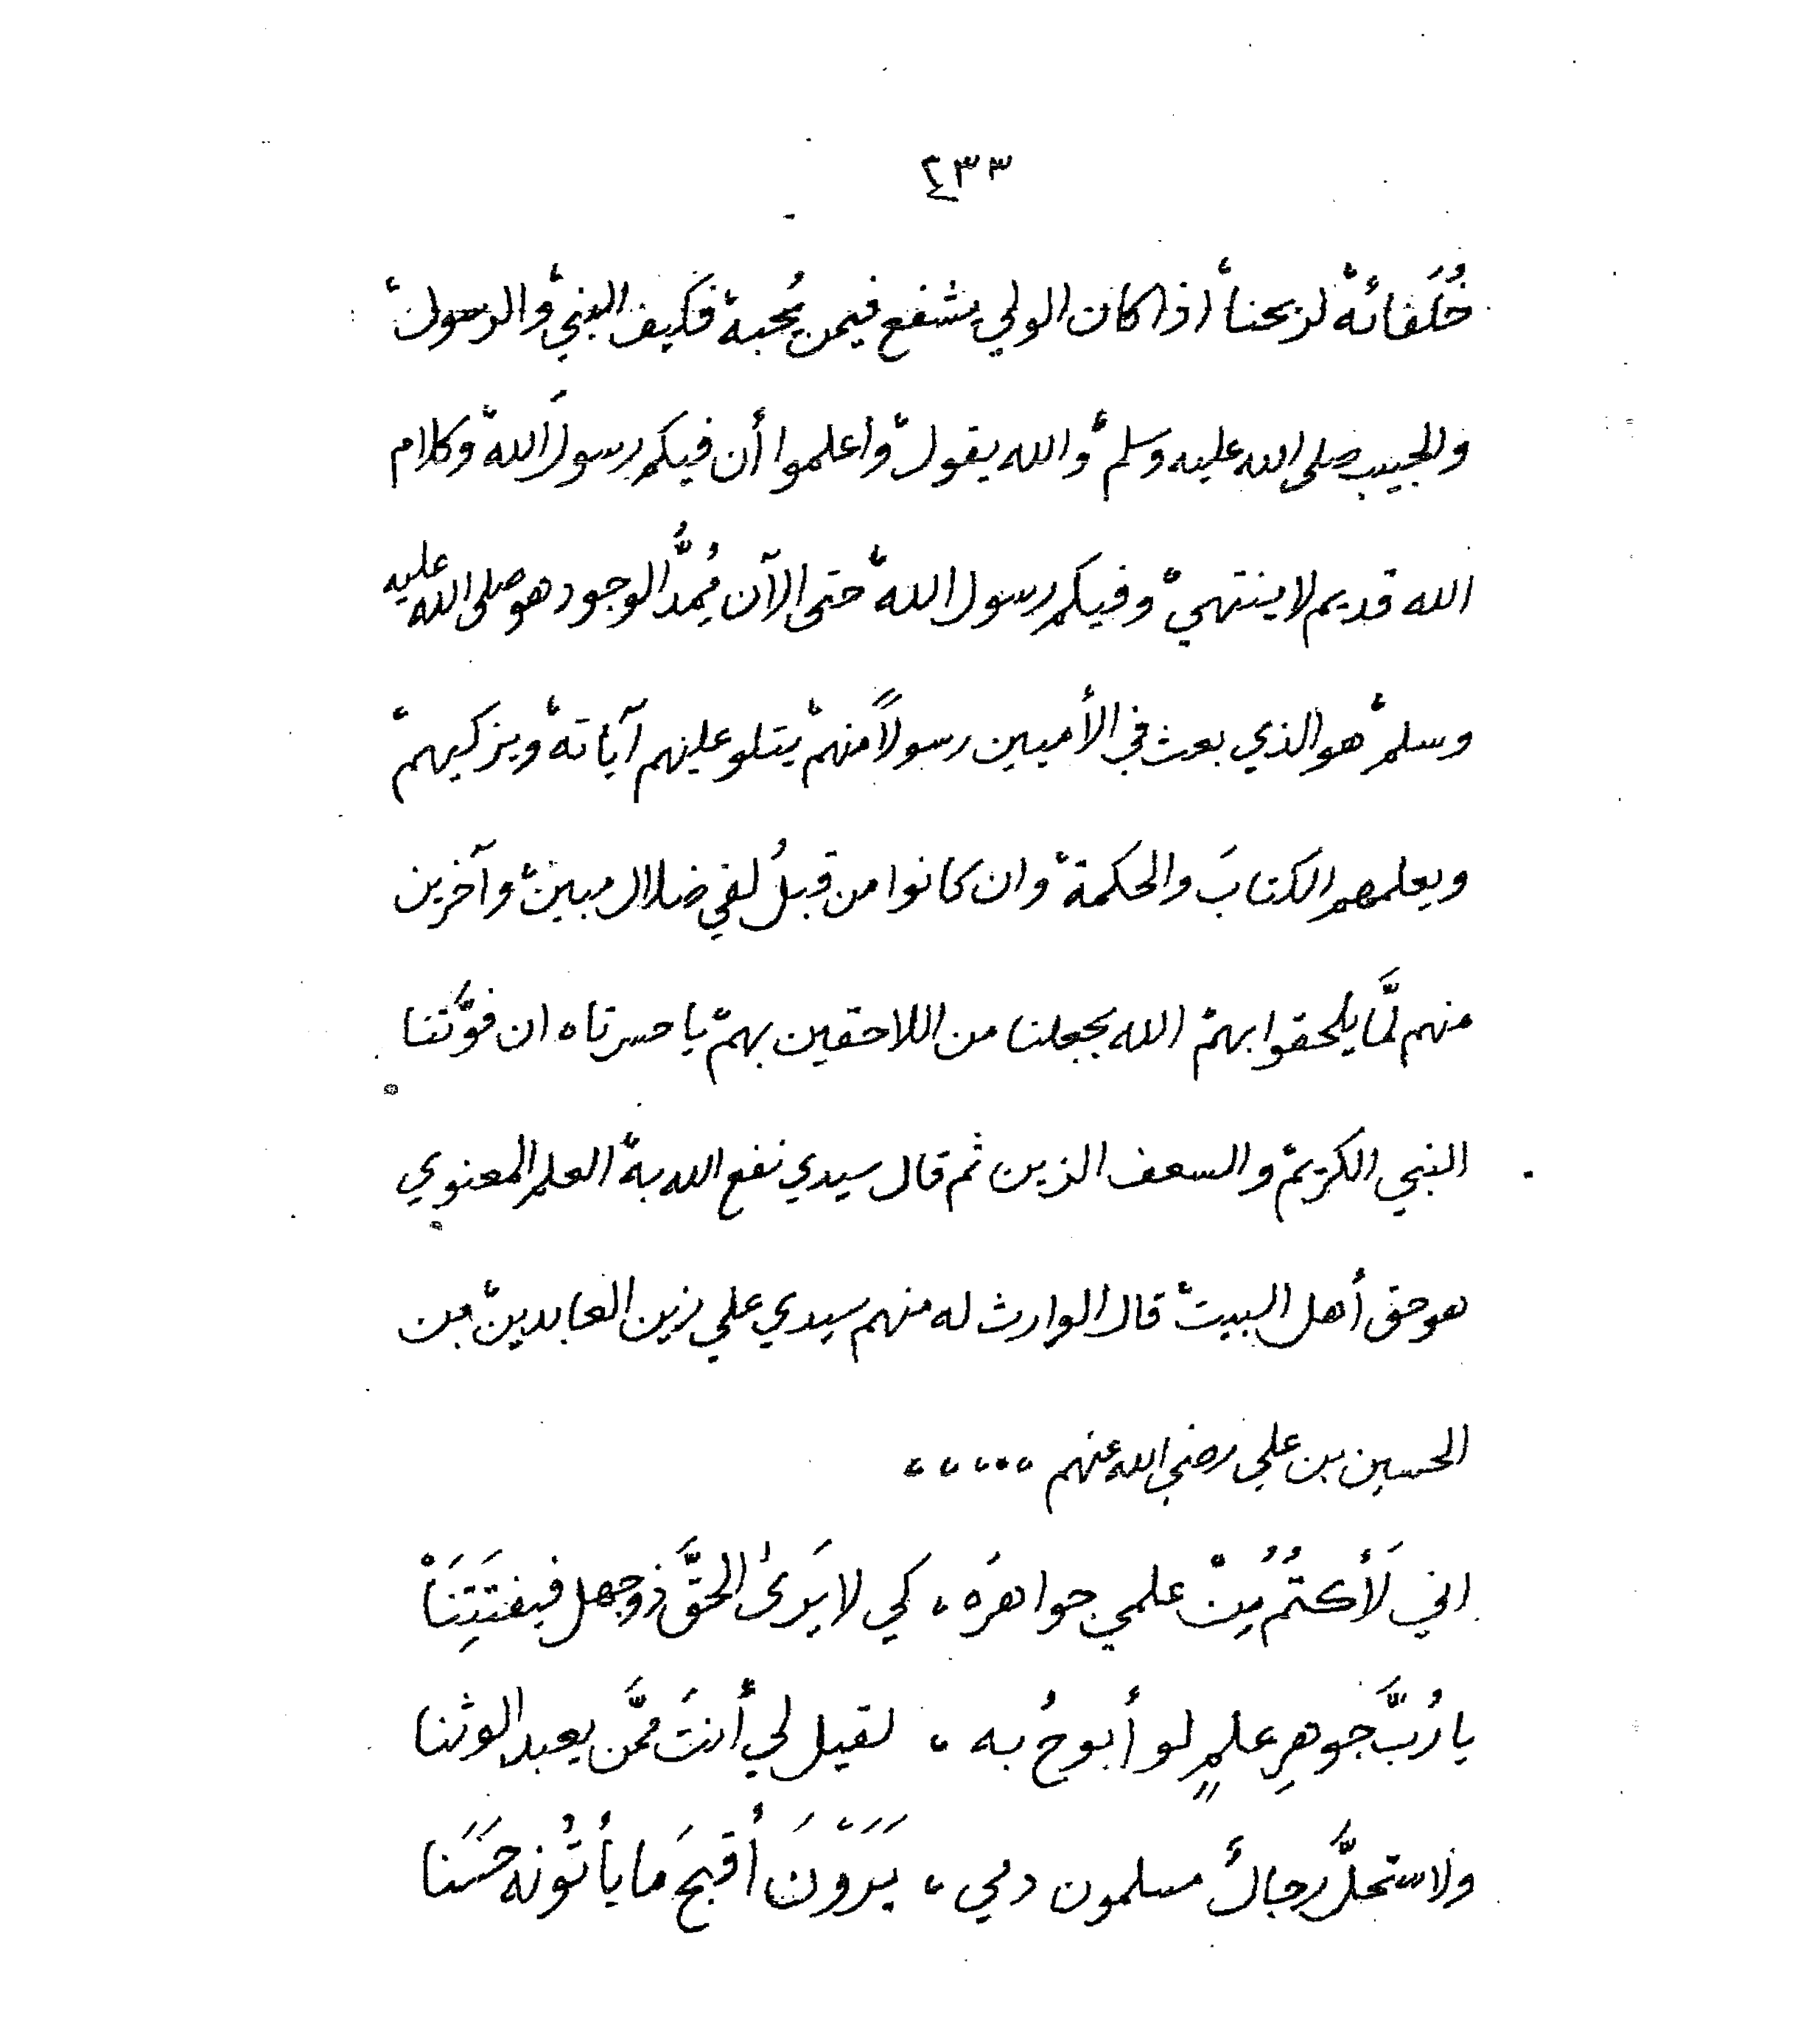 ٤٣٣
خُلَفائه لربحنا، اذا كان الولي يشفع فيمن يُحبه، فكيف النبي، والرسول،
والحبيب صلى الله عليه وسلم، والله يقول، واعلموا أن فيكم رسولَ الله، وكلام
الله قديم لا ينتهي، وفيكم رسول الله، حتى الآن مُمِدُّ الوجود هو صلى الله عليه
وسلم، هو الذي بعث في الأميين رسولاً منهم، يتلو عليهم آياته، ويزكيهم،
ويعلمهم الكتابَ والحكمة، وان كانوا من قبلُ لفي ضلال مبين، وآخرين
منهم لمَّا يلحقوا بهم، الله يجعلنا من اللاحقين بهم، يا حسرتاه ان فوَّتنا
النبي الكريم، والسعف الزين ثم قال سيدي نفع الله به، العلم المعنوي
هو حق أهل البيت، قال الوارث له منهم سيدي علي زين العابدين، بن
الحسين بن علي رضي الله عنهم ،،،،،
اني لَأَكتُمُ مِنْ علمي جواهرَه ، كي لا يَرىٰ الحقَّ ذو جهل فيفتَتِنَا
يا رُبَّ جوهرِ علمٍ لو أبوحُ به ، لقيل لي أنتَ ممَّن يعبد الوثنا
ولاستحلَّ رجالٌ مسلمون دمي ، يَرَوْنَ أقبحَ ما يأتُونه حَسَنا